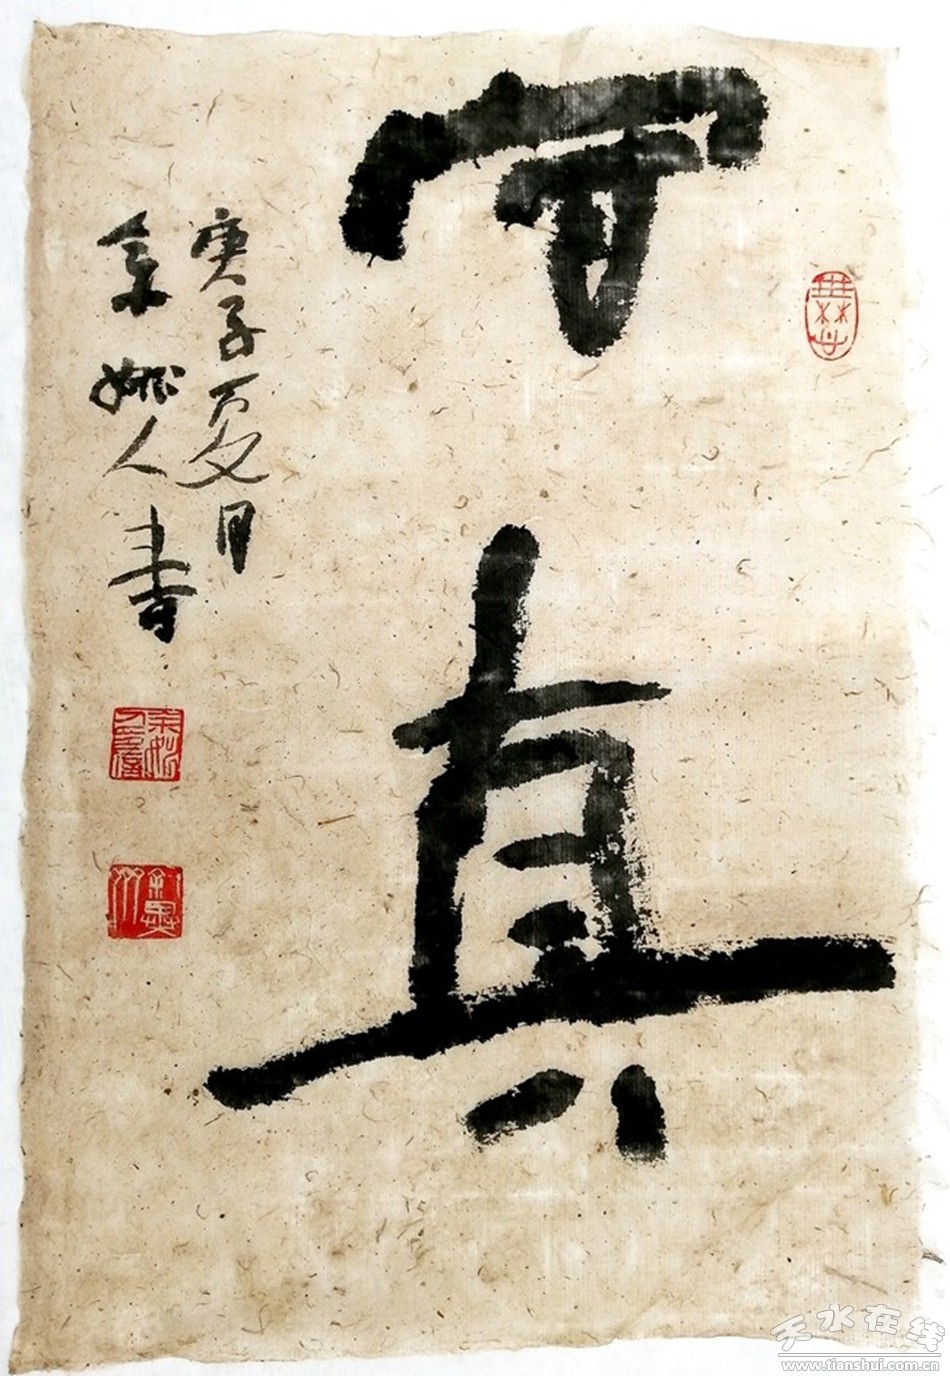 守真
庚子夏月
余姚人書
天水在线
www.tianshui.com.cn